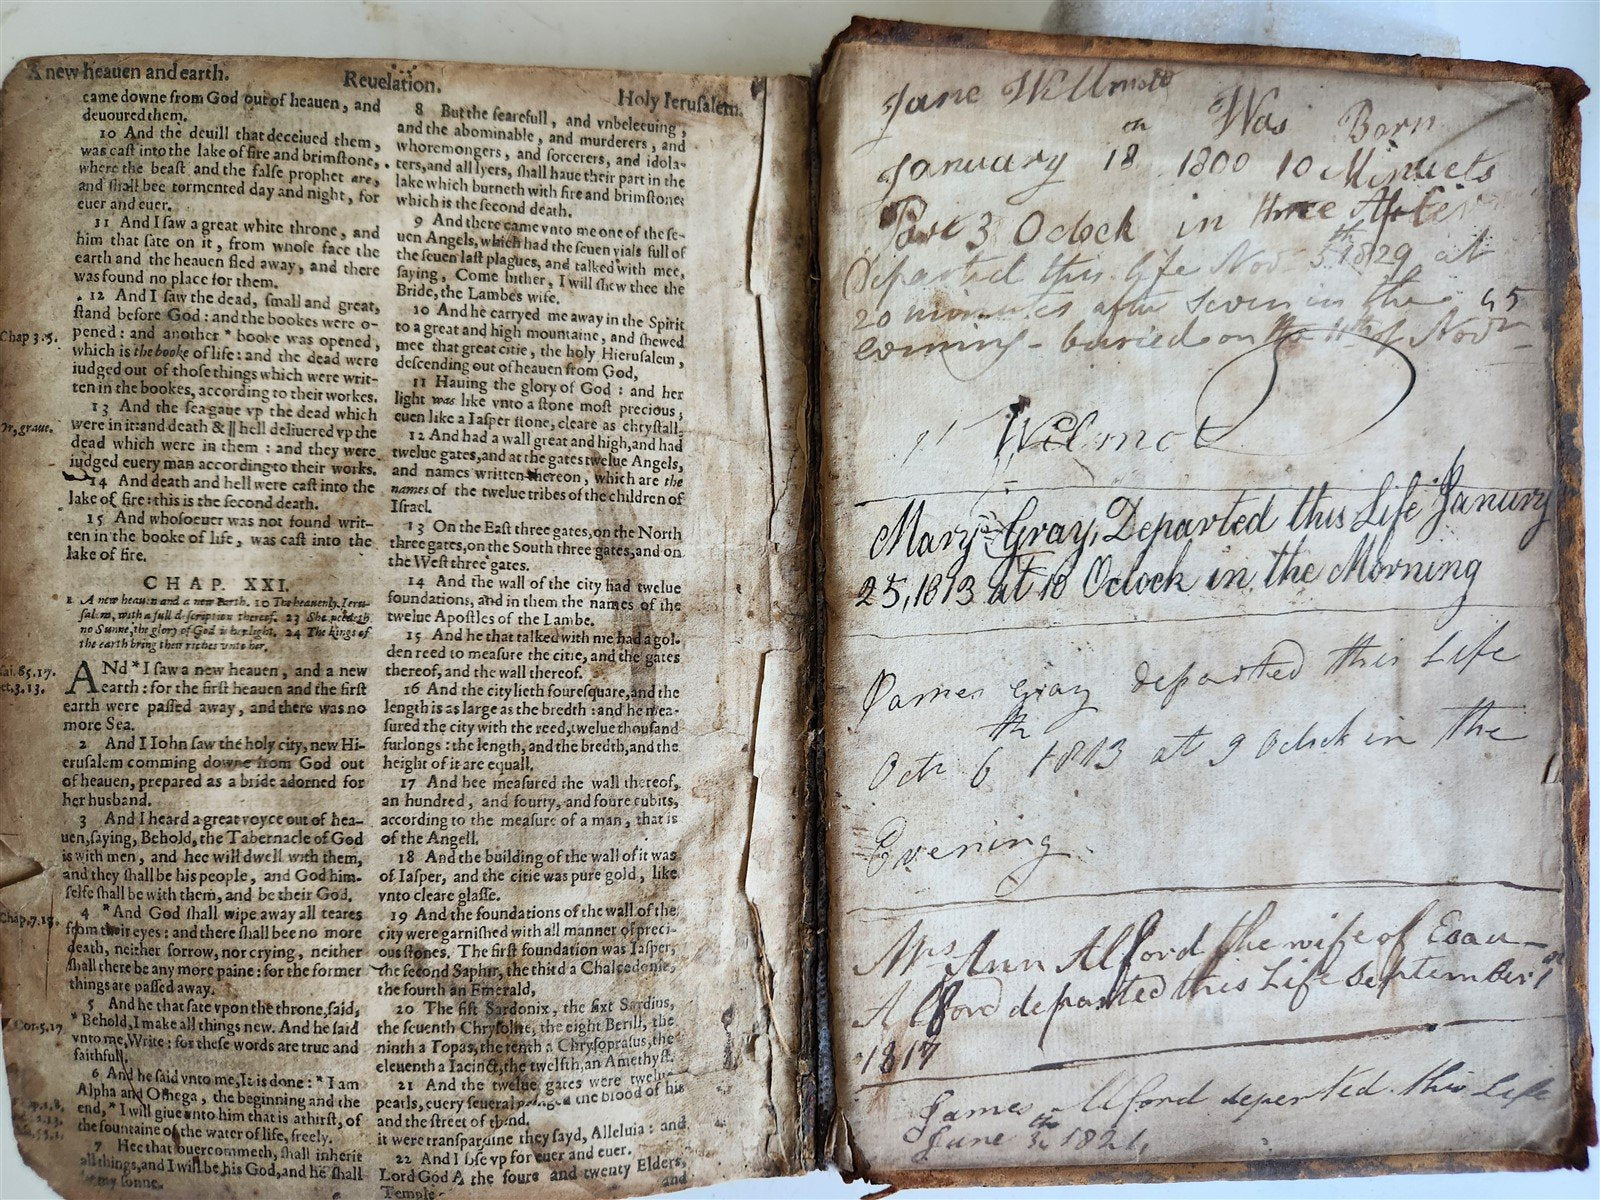 A new heauen and earth.
Reuelation.
Holy Ierusalem.
came downe from God out of heauen, and
deuoured them.
10 And the deuill that deceiued them,
was cast into the lake of fire and brimstone,
where the beast and the false prophet are,
and shall bee tormented day and night, for
euer and euer.
11 And I saw a great white throne, and
him that sate on it, from whose face the
earth and the heauen fled away, and there
was found no place for them.
12 And I saw the dead, small and great,
stand before God: and the bookes were o-
Chap 3.5.
pened: and another * booke was opened,
which is the booke of life: and the dead were
iudged out of those things which were writ-
ten in the bookes, according to their workes.
13 And the sea gaue vp the dead which
Or, graue.
were in it: and death & || hell deliuered vp the
dead which were in them: and they were
iudged euery man according to their works.
14 And death and hell were cast into the
lake of fire: this is the second death.
15 And whosoeuer was not found writ-
ten in the booke of life, was cast into the
lake of fire.
CHAP. XXI.
1 A new heauen and a new Earth. 10 The heauenly Ieru-
salem, with a full description thereof. 23 She needeth
no Sunne, the glory of God is her light. 24 The kings of
the earth bring their riches vnto her.
ANd * I saw a new heauen, and a new
earth: for the first heauen and the first
earth were passed away, and there was no
more Sea.
2 And I Iohn saw the holy city, new Hi-
erusalem comming downe from God out
of heauen, prepared as a bride adorned for
her husband.
3 And I heard a great voyce out of hea-
uen, saying, Behold, the Tabernacle of God
is with men, and hee will dwell with them,
and they shall be his people, and God him-
selfe shall be with them, and be their God.
Chap.7.17.
4 * And God shall wipe away all teares
from their eyes: and there shall bee no more
death, neither sorrow, nor crying, neither
shall there be any more paine: for the former
things are passed away.
5 And he that sate vpon the throne, said,
Cor.5.17
* Behold, I make all things new. And he said
vnto me, Write: for these words are true and
faithfull.
6 And he said vnto me, It is done: * I am
Alpha and Omega, the beginning and the
end, * I will giue vnto him that is athirst, of
the fountaine of the water of life, freely.
7 Hee that ouercommeth, shall inherit
all things, and I will be his God, and he shall
be my sonne.
8 But the fearefull, and vnbeleeuing,
and the abominable, and murderers, and
whoremongers, and sorcerers, and idola-
ters, and all lyers, shall haue their part in the
lake which burneth with fire and brimstone:
which is the second death.
9 And there came vnto me one of the se-
uen Angels, which had the seuen vials full of
the seuen last plagues, and talked with mee,
saying, Come hither, I will shew thee the
Bride, the Lambes wife.
10 And he carryed me away in the Spirit
to a great and high mountaine, and shewed
mee that great citie, the holy Hierusalem,
descending out of heauen from God,
11 Hauing the glory of God: and her
light was like vnto a stone most precious,
euen like a Iasper stone, cleare as chrystall,
12 And had a wall great and high, and had
twelue gates, and at the gates twelue Angels,
and names written thereon, which are the
names of the twelue tribes of the children of
Israel.
13 On the East three gates, on the North
three gates, on the South three gates, and on
the West three gates.
14 And the wall of the city had twelue
foundations, and in them the names of the
twelue Apostles of the Lambe.
15 And he that talked with me had a gol-
den reed to measure the citie, and the gates
thereof, and the wall thereof.
16 And the city lieth foursquare, and the
length is as large as the bredth: and he mea-
sured the city with the reed, twelue thousand
furlongs: the length, and the bredth, and the
height of it are equall.
17 And hee measured the wall thereof,
an hundred, and fourty, and foure cubits,
according to the measure of a man, that is
of the Angell.
18 And the building of the wall of it was
of Iasper, and the citie was pure gold, like
vnto cleare glasse.
19 And the foundations of the wall of the
city were garnished with all manner of preci-
ous stones. The first foundation was Iasper,
the second Saphir, the third a Chalcedonie,
the fourth an Emerald,
20 The fift Sardonix, the sixt Sardius,
the seuenth Chrysolite, the eight Berill, the
ninth a Topas, the tenth a Chrysoprasus, the
eleuenth a Iacinct, the twelfth, an Amethyst.
21 And the twelue gates were twelue
pearls, euery seuerall the blood of his
and the street of
it were transparaine they sayd, Alleluia: and
22 And I vp for euer and euer.
Lord God the foure and twenty Elders,
Temple and
Jane Willmott
Was Born
January 18th 1800 10 Minuets
Past 3 Oclock in three After
Departed this life Nov 5th 1829 at
20 minutes after seven in the
evening - buried on the 11th of Novr
Wilmot
Mary Gray, Departed this Life Janury
25, 1813 at 10 Oclock in the Morning
James Gray departed this Life
Octr 6th 1813 at 9 Oclock in the
Evening
Mrs Ann Alford the wife of Esau
Alford departed this Life September 1
1817
James Alford departed this Life
June 1821